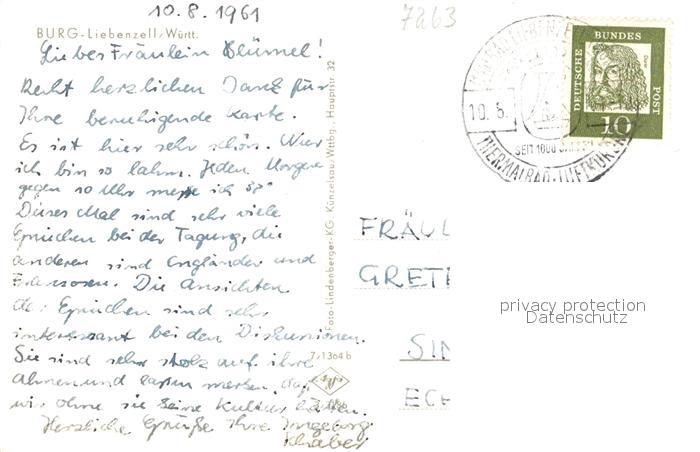 10.8.1961
7263
BURG-Liebenzell/Württ.
Liebes Fräulein Blümel!
Recht herzlichen Dank für
Ihre beruhigende Karte.
Es ist hier sehr schön. Nur
ich bin so lahm. Jeden Morgen
gegen 10 Uhr messe ich
Dieses Mal sind sehr viele
Griechen bei der Tagung, die
anderen sind Engländer und
Franzosen. Die Ansichten
der Griechen sind sehr
interessant bei den Diskussionen.
Sie sind sehr stolz auf ihre
Ahnen und lassen merken, daß
wir ohne sie keine Kultur hätten.
Herzliche Grüße Ihre Ingeborg
Schaber
Foto-Lindenberger-KG. Künzelsau Wttbg., Hauptstr. 32
7/1364 b
DEUTSCHE BUNDES POST
Dürer
10
10.8.
SEIT 1000
THERMALBAD-LUFTKURORT
FRÄUL
GRET
SIN
ECH
privacy protection
Datenschutz